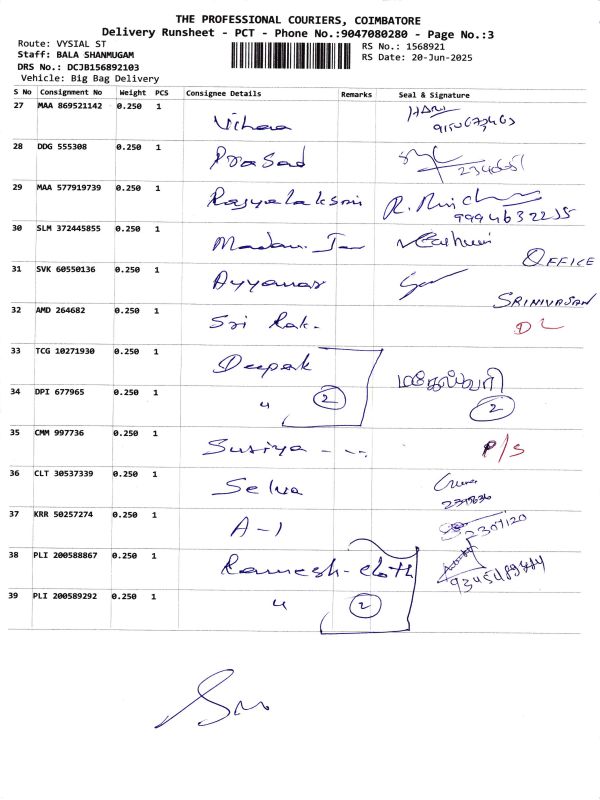 THE PROFESSIONAL COURIERS, COIMBATORE
Delivery Runsheet - PCT - Phone No.:9047080280 - Page No.:3
Route: VYSIAL ST
RS No.: 1568921
Staff: BALA SHANMUGAM
RS Date: 20-Jun-2025
DRS No.: DCJB156892103
Vehicle: Big Bag Delivery
S No Consignment No Weight PCS Consignee Details Remarks Seal & Signature
27 MAA 869521142 0.250 1 HARI
28 DDG 555308 0.250 1 Prasad
29 MAA 577919739 0.250 1 9994632235
30 SLM 372445855 0.250 1
OFFICE
31 SVK 60550136 0.250 1 Ayyanar
SRINIVASAN
32 AMD 264682 0.250 1 Sri DL
33 TCG 10271930 0.250 1 Deepak
34 DPI 677965 0.250 1 " 2 2
35 CMM 997736 0.250 1 P/S
36 CLT 30537339 0.250 1 Selva
37 KRR 50257274 0.250 1 A-1 2307120
38 PLI 200588867 0.250 1 Ramesh-cloth
39 PLI 200589292 0.250 1 " 2